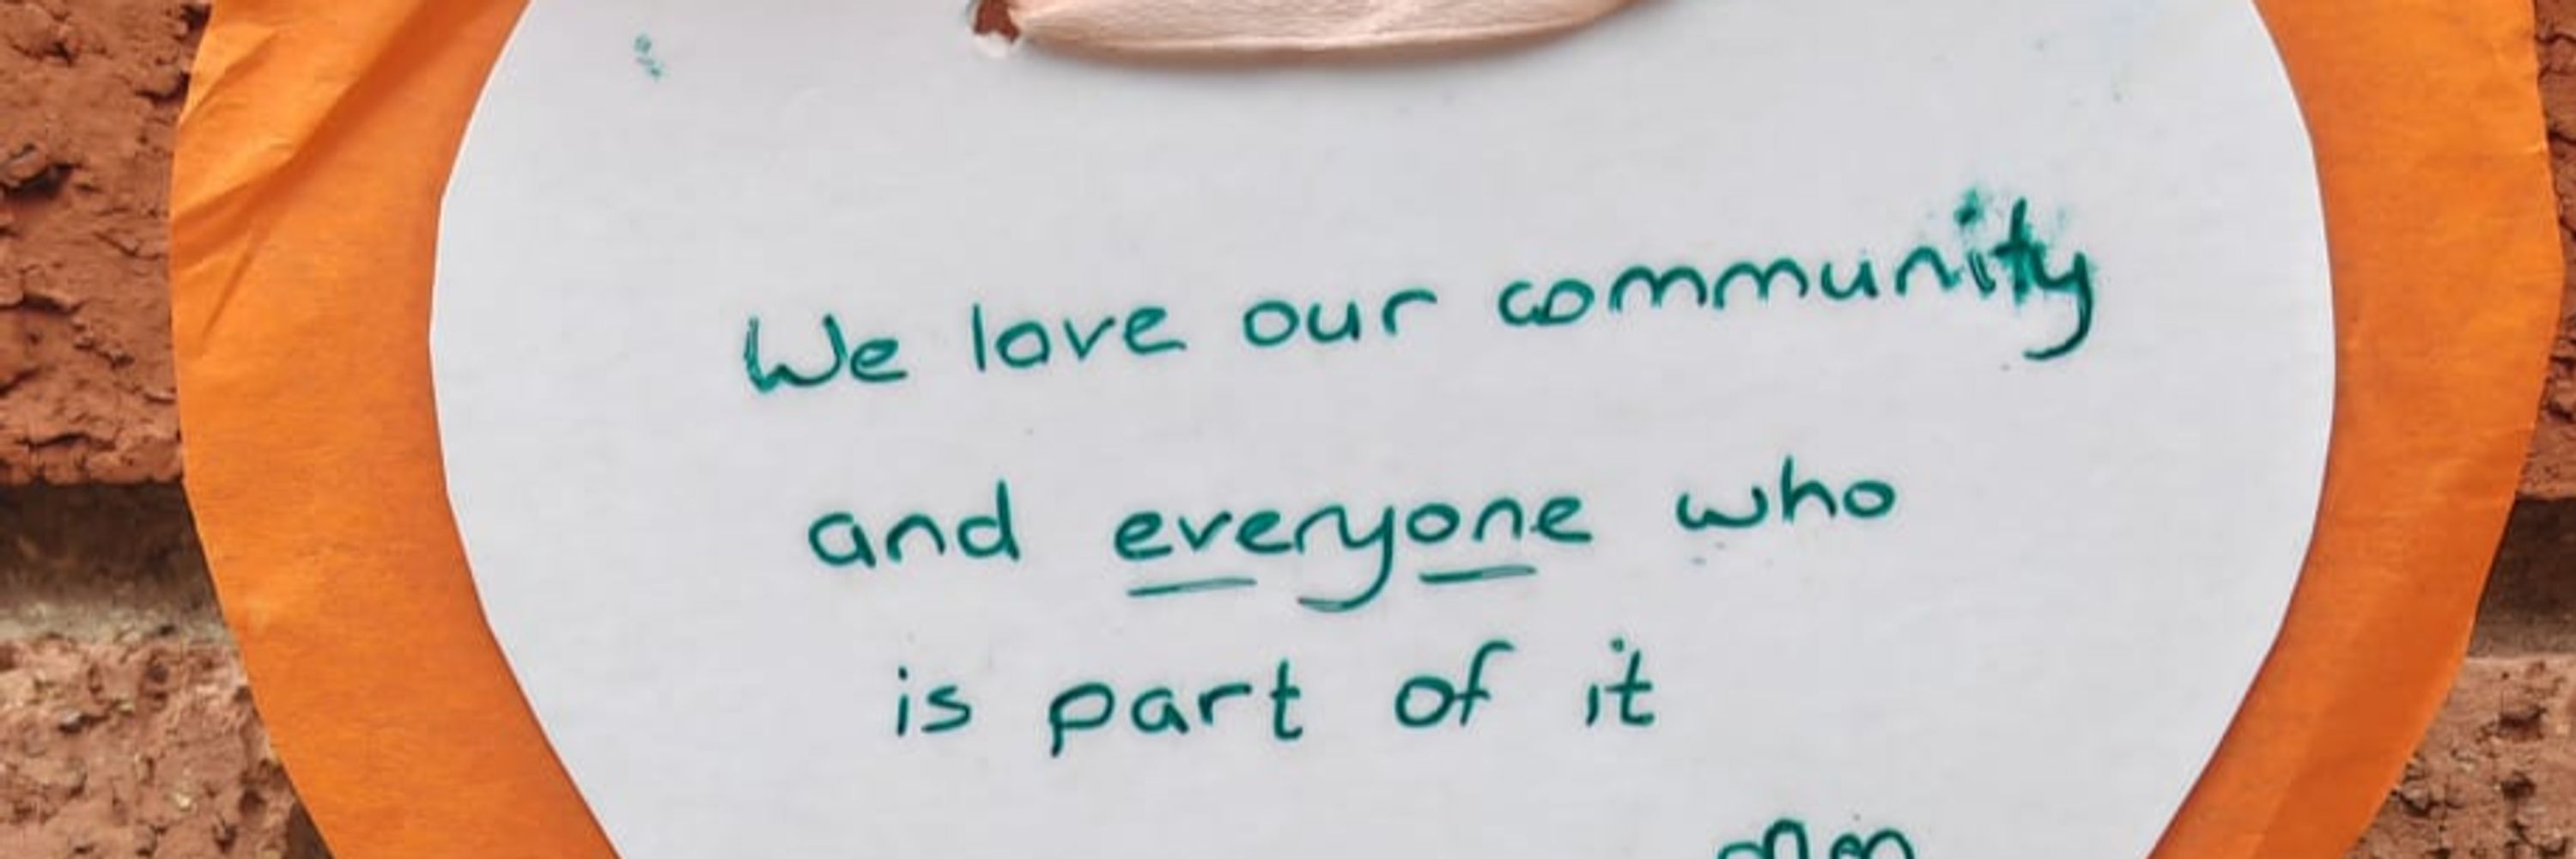 We love our community
and everyone who
is part of it